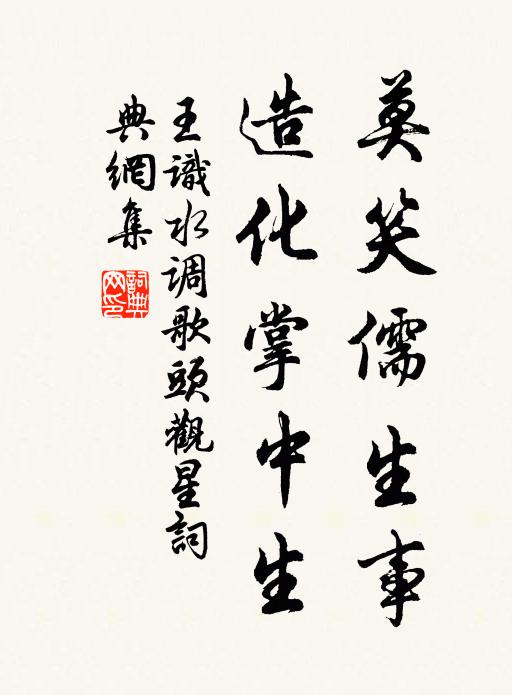 莫笑儒生事
造化掌中生
王識水调歌頭觀星詞
典網集
詞典网印